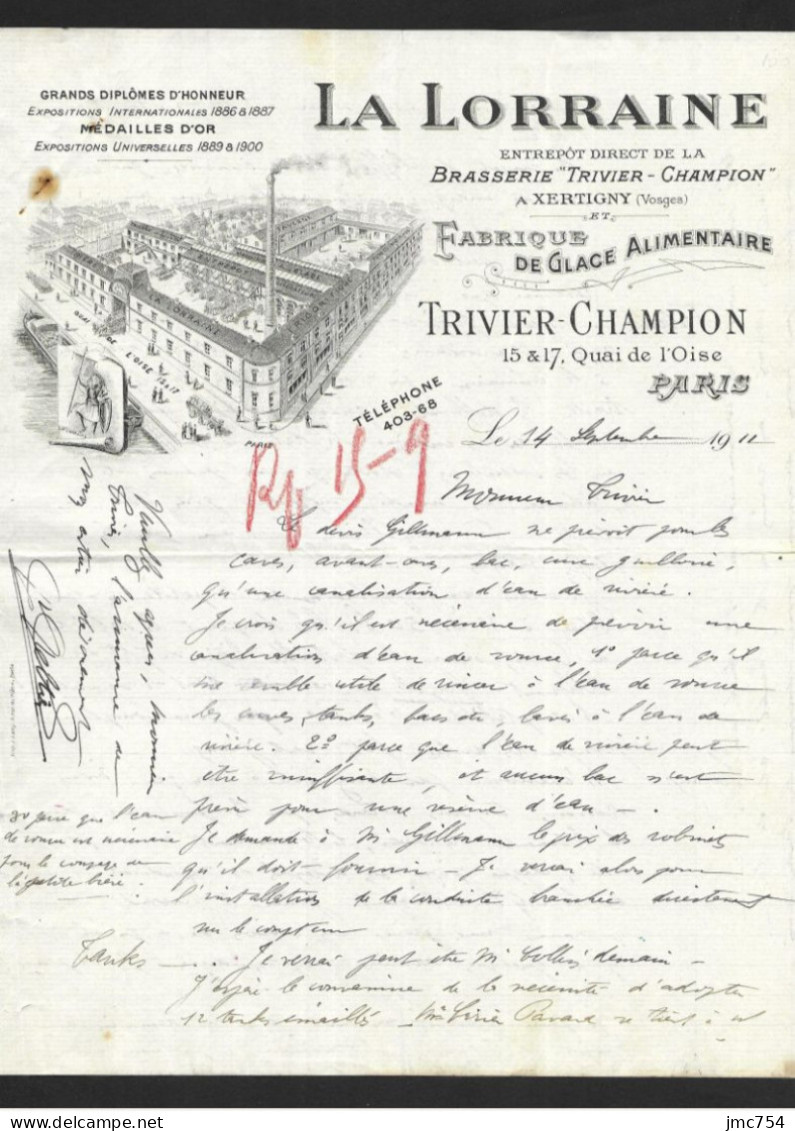 GRANDS DIPLÔMES D'HONNEUR
EXPOSITIONS INTERNATIONALES 1886 & 1887
MÉDAILLES D'OR
EXPOSITIONS UNIVERSELLES 1889 & 1900
LA LORRAINE
ENTREPÔT DIRECT DE LA
BRASSERIE "TRIVIER-CHAMPION"
A XERTIGNY (Vosges)
ET
FABRIQUE
DE GLACE ALIMENTAIRE
TRIVIER-CHAMPION
15 & 17, Quai de l'Oise
PARIS
LA LORRAINE
QUAI DE L'OISE 15 & 17
PARIS
TÉLÉPHONE
403-68
Le 14 Septembre 1911
Rp 15-9
Monsieur Trivier
Le devis Gillmann ne prévoit pour les
caves, avant-caves, bac, une
qu'une canalisation d'eau de rivière.
Je crois qu'il est nécessaire de prévoir une
canalisation d'eau de source, 1º parce qu'il
me semble utile de rincer à l'eau de source
les cuves, tanks, bacs etc, lavés à l'eau de
rivière. 2º parce que l'eau de rivière peut
être insuffisante, et aucun bac n'est
prévu pour une réserve d'eau -.
Je demande à Mr Gillmann le prix des robinets
qu'il doit fournir - Je verrai alors pour
l'installation de la conduite branchée directement
sur le compteur
3º parce que l'eau
de source est nécessaire
pour le coupage de
la petite bière.
Tanks - .. Je verrai peut être Mr demain -
12 tanks émaillés
Veuillez agréer, Monsieur
Trivier, l'assurance de
mes
jmc754